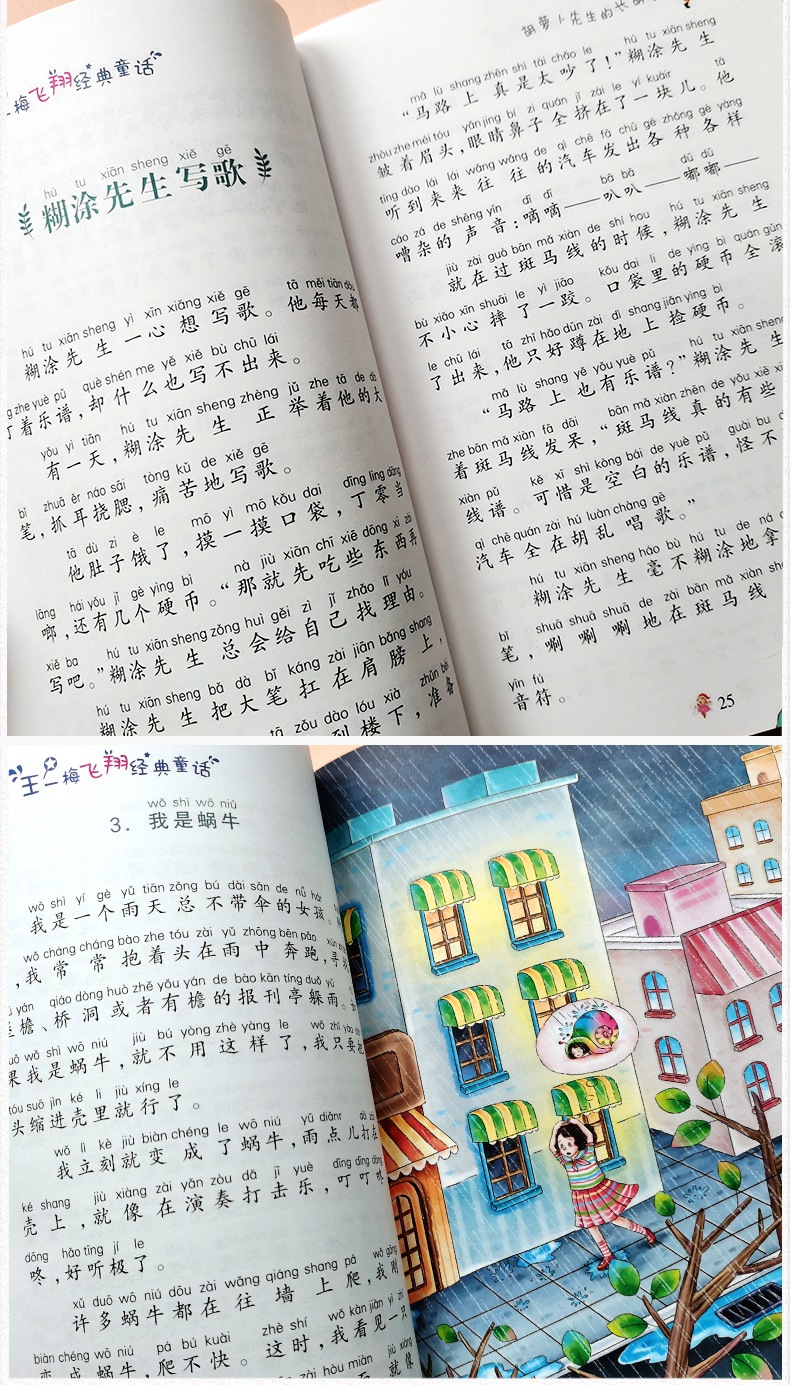 一梅飞翔经典童话
hú tu xiān sheng xiě gē
糊涂先生写歌
hú tu xiān sheng yì xīn xiǎng xiě gē tā měi tiān dōu
糊涂先生一心想写歌。他每天都
zhe yuè pǔ què shén me yě xiě bù chū lái
盯着乐谱，却什么也写不出来。
yǒu yì tiān hú tu xiān sheng zhèng jǔ zhe tā de dà
有一天，糊涂先生正举着他的大
bǐ zhuā ěr náo sāi tòng kǔ de xiě gē
笔，抓耳挠腮，痛苦地写歌。
tā dù zi è le mō yì mō kǒu dai dīng líng dāng
他肚子饿了，摸一摸口袋，丁零当
lāng hái yǒu jǐ gè yìng bì nà jiù xiān chī xiē dōng xi zài
啷，还有几个硬币。“那就先吃些东西再
xiě ba hú tu xiān sheng zǒng huì gěi zì jǐ zhǎo lǐ yóu
写吧。”糊涂先生总会给自己找理由。
hú tu xiān sheng bǎ dà bǐ káng zài jiān bǎng shang
糊涂先生把大笔扛在肩膀上，
zǒu dào lóu xià zhǔn bèi
到楼下，准备
胡萝卜先生的长
mǎ lù shang zhēn shì tài chǎo le hú tu xiān sheng
“马路上真是太吵了！”糊涂先生
zhòu zhe méi tóu yǎn jing bí zi quán jǐ zài le yí kuàir tā
皱着眉头，眼睛鼻子全挤在了一块儿。他
tīng dào lái lái wǎng wǎng de qì chē fā chū gè zhǒng gè yàng
听到来来往往的汽车发出各种各样
cáo zá de shēng yīn dī dī bā bā dū dū
嘈杂的声音：嘀嘀——叭叭——嘟嘟——
jiù zài guò bān mǎ xiàn de shí hou hú tu xiān sheng
就在过斑马线的时候，糊涂先生
bù xiǎo xīn shuāi le yì jiāo kǒu dai li de yìng bì quán gǔn
不小心摔了一跤。口袋里的硬币全滚
le chū lái tā zhǐ hǎo dūn zài dì shang jiǎn yìng bì
了出来，他只好蹲在地上捡硬币。
mǎ lù shang yě yǒu yuè pǔ hú tu xiān sheng
“马路上也有乐谱？”糊涂先生
zhe bān mǎ xiàn fā dāi bān mǎ xiàn zhēn de yǒu xiē
着斑马线发呆，“斑马线真的有些
xiàn pǔ kě xī shì kòng bái de yuè pǔ guài bu
线谱。可惜是空白的乐谱，怪不
qì chē quán zài hú luàn chàng gē
汽车全在胡乱唱歌。”
hú tu xiān sheng háo bù hú tu de ná
糊涂先生毫不糊涂地拿
bǐ shuā shuā shuā de zài bān mǎ xiàn
笔，唰唰唰地在斑马线
yīn fú
音符。
25
王一梅飞翔经典童话
wǒ shì wō niú
3. 我是蜗牛
wǒ shì yí gè yǔ tiān zǒng bú dài sǎn de nǚ hái
我是一个雨天总不带伞的女孩。
wǒ cháng cháng bào zhe tóu zài yǔ zhōng bēn pǎo
，我常常抱着头在雨中奔跑，寻
yán qiáo dòng huò zhě yǒu yán de bào kān tíng duǒ yǔ
檐、桥洞或者有檐的报刊亭躲雨。
guǒ wǒ shì wō niú jiù bú yòng zhè yàng le wǒ zhǐ yào
果我是蜗牛，就不用这样了，我只要把
tóu suō jìn ké li jiù xíng le
头缩进壳里就行了。
wǒ lì kè jiù biàn chéng le wō niú yǔ diǎnr dǎ zài
我立刻就变成了蜗牛，雨点儿打在
ké shang jiù xiàng zài yǎn zòu dǎ jī yuè dīng dīng dōng
壳上，就像在演奏打击乐，叮叮咚
dōng hǎo tīng jí le
咚，好听极了。
xǔ duō wō niú dōu zài wǎng qiáng shang pá wǒ gāng
许多蜗牛都在往墙上爬，我刚
biàn chéng wō niú pá bú kuài zhè shí wǒ kàn jiàn yì zhī
变成蜗牛，爬不快。这时，我看见一只
zài hòu miàn jiù xiàng
在后面 就像